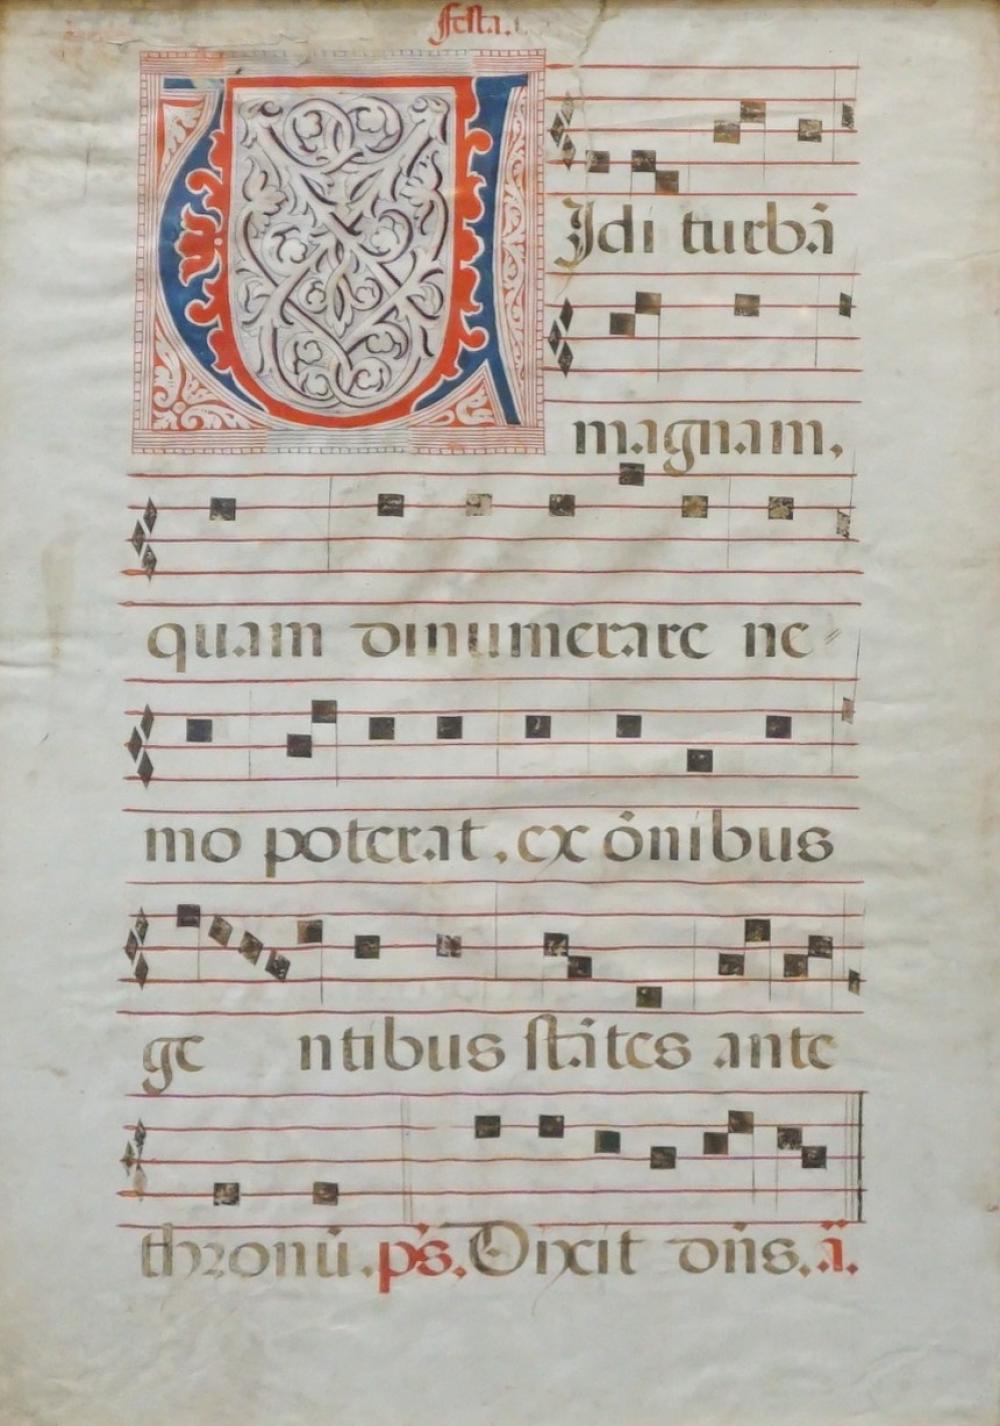 festa.
VIdi turbā
magnam,
quam dinumerare ne
mo poterat, ex ōnibus
gentibus stātes ante
thronū. ps. Dixit dn̄s. ā.